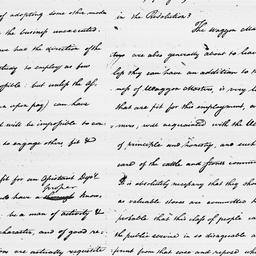 of adopting some other mode
the business unexecuted.
has the direction of the
study to employ as few
possible. but unless the Af,
open pay) can have
will be impossible to con
to engage others, fit &
fit for an Assistant Depy
proper
have a through know
be a man of activity &
character, and of good re
are actually requisite
in the Resolution?
The Waggon Mas
ters are also generally about to leav
less they can have an addition to th
of Waggon Masters is very l
that are fit for this employment, a
men, well acquainted with the
of principle and honesty, and suc
care of the cattle and forces commi
It is absolutely necessary that they sho
as valuable stores are committed t
probable that this class of people ca
the public service in so disagreeable a
from that ease and repose wh